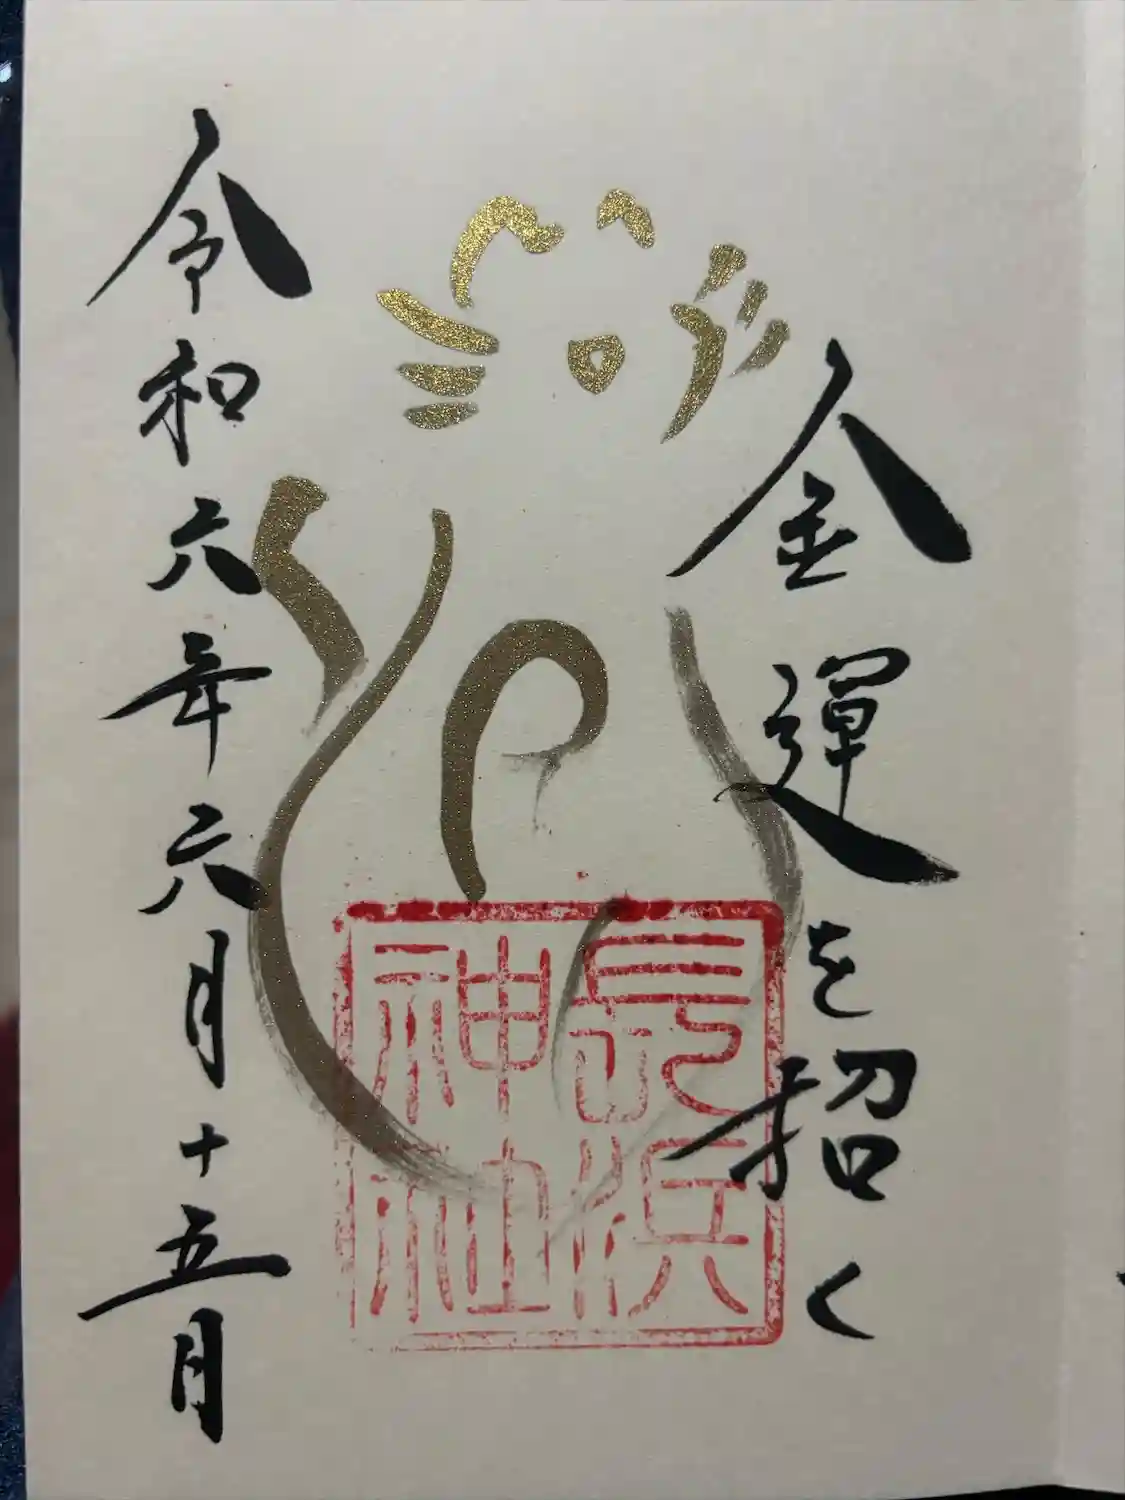 金運を招く
長浜神社
令和六年六月十五日